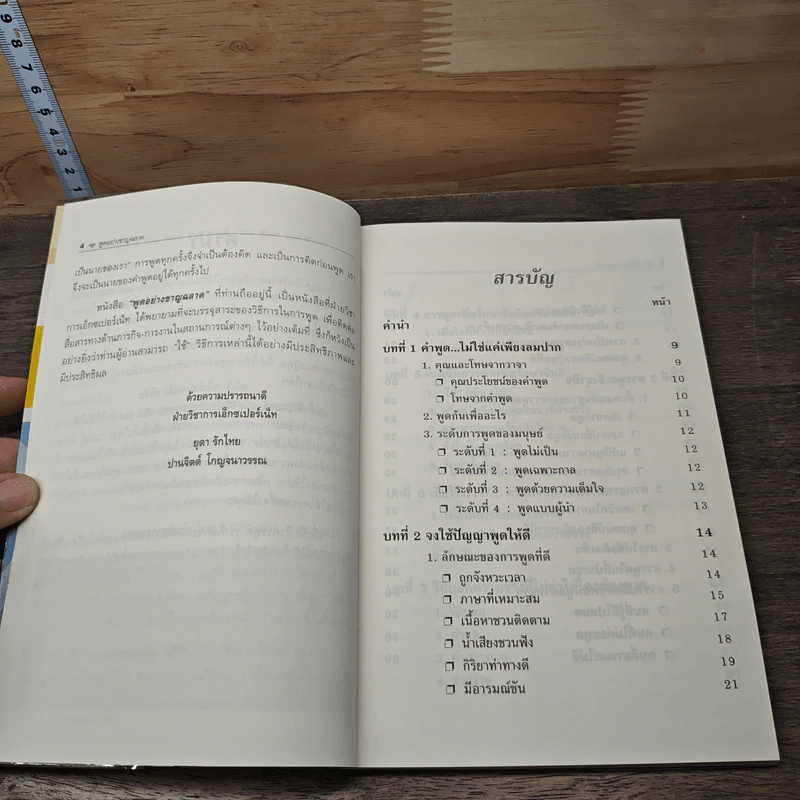 9
8
7
6
5
4
3
2
1
4 พูดอย่างชาญฉลาด
เป็นนายของเรา" การพูดทุกครั้งจึงจำเป็นต้องคิด และเป็นการคิดก่อนพูด เรา
จึงจะเป็นนายของคำพูดอยู่ได้ทุกครั้งไป
หนังสือ "พูดอย่างชาญฉลาด" ที่ท่านถืออยู่นี้ เป็นหนังสือที่ฝ่ายวิชา
การเอ็กซเปอร์เน็ท ได้พยายามที่จะบรรจุสาระของวิธีการในการพูด เพื่อติดต่อ
สื่อสารทางด้านภารกิจ-การงานในสถานการณ์ต่างๆ ไว้อย่างเต็มที่ ซึ่งก็หวังเป็น
อย่างยิ่งว่าท่านผู้อ่านสามารถ "ใช้" วิธีการเหล่านี้ได้อย่างมีประสิทธิภาพและ
มีประสิทธิผล
ด้วยความปรารถนาดี
ฝ่ายวิชาการเอ็กซเปอร์เน็ท
ยุดา รักไทย
ปานจิตต์ โกญจนาวรรณ
สารบัญ
หน้า
คำนำ
บทที่ 1 คำพูด...ไม่ใช่แค่เพียงลมปาก 9
1. คุณและโทษจากวาจา 9
❒ คุณประโยชน์ของคำพูด 10
❒ โทษจากคำพูด 10
2. พูดกันเพื่ออะไร 11
3. ระดับการพูดของมนุษย์ 12
❒ ระดับที่ 1 : พูดไม่เป็น 12
❒ ระดับที่ 2 : พูดเฉพาะกาล 12
❒ ระดับที่ 3 : พูดด้วยความเต็มใจ 12
❒ ระดับที่ 4 : พูดแบบผู้นำ 13
บทที่ 2 จงใช้ปัญญาพูดให้ดี 14
1. ลักษณะของการพูดที่ดี 14
❒ ถูกจังหวะเวลา 14
❒ ภาษาที่เหมาะสม 15
❒ เนื้อหาชวนติดตาม 17
❒ น้ำเสียงชวนฟัง 18
❒ กิริยาท่าทางดี 19
❒ มีอารมณ์ขัน 21